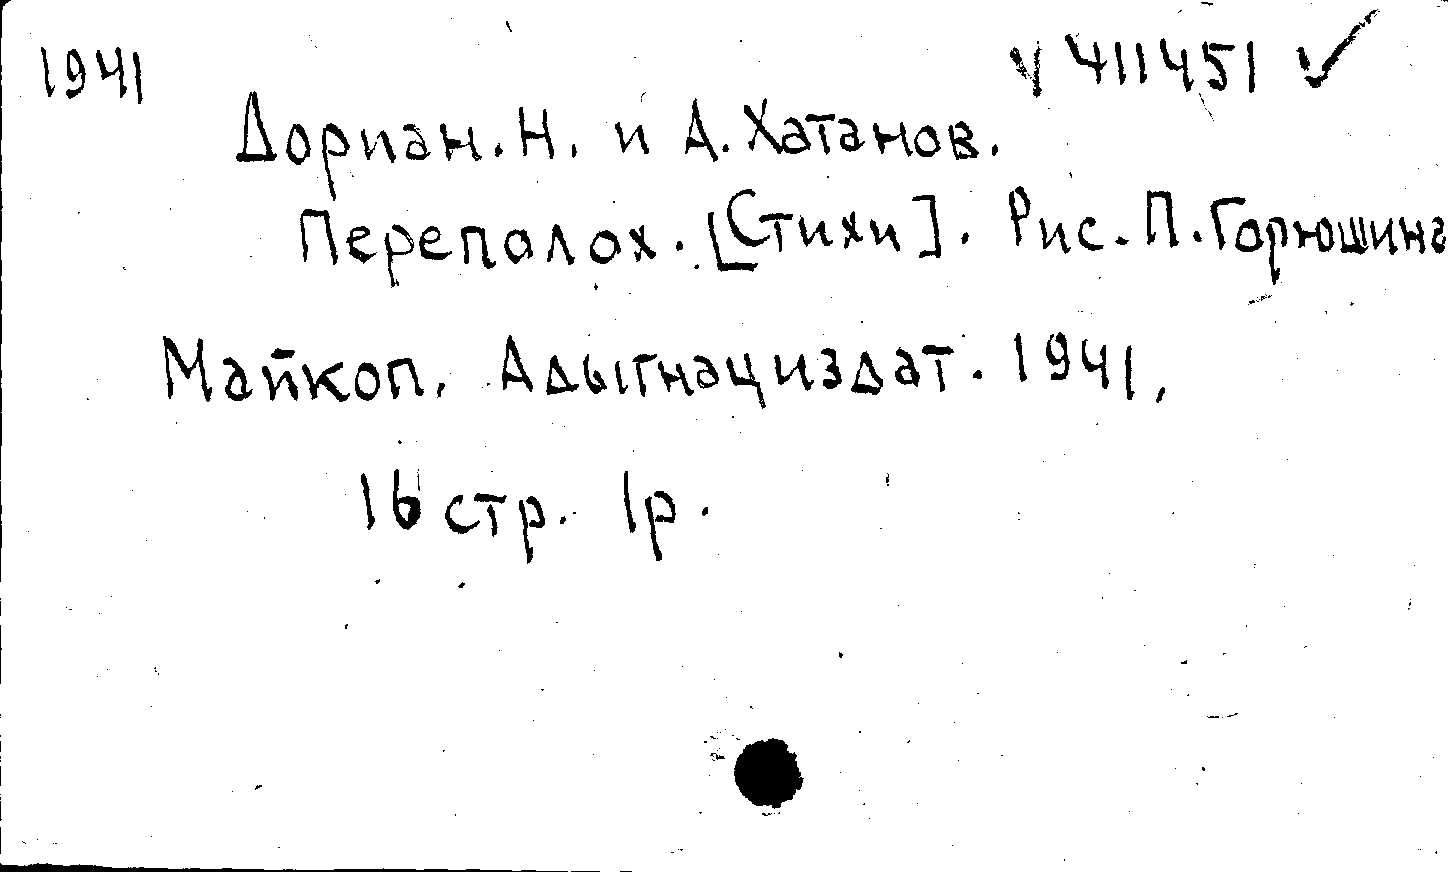 1941
V 411451 ✓
Дориан. Н. и А. Хатанов.
Переполох. [Стихи]. Рис. П. Горюшина
Майкоп. Адыгнациздат. 1941,
16 стр. 1р.